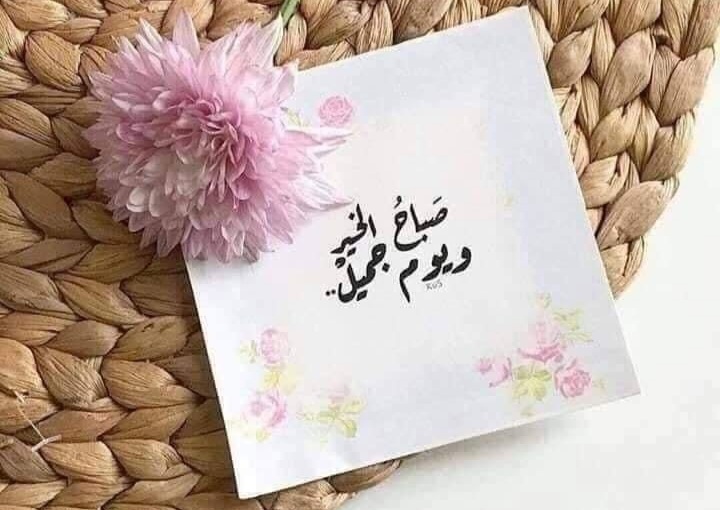 صَباحُ الخيرِ
ويوم جميلْ..
RUS